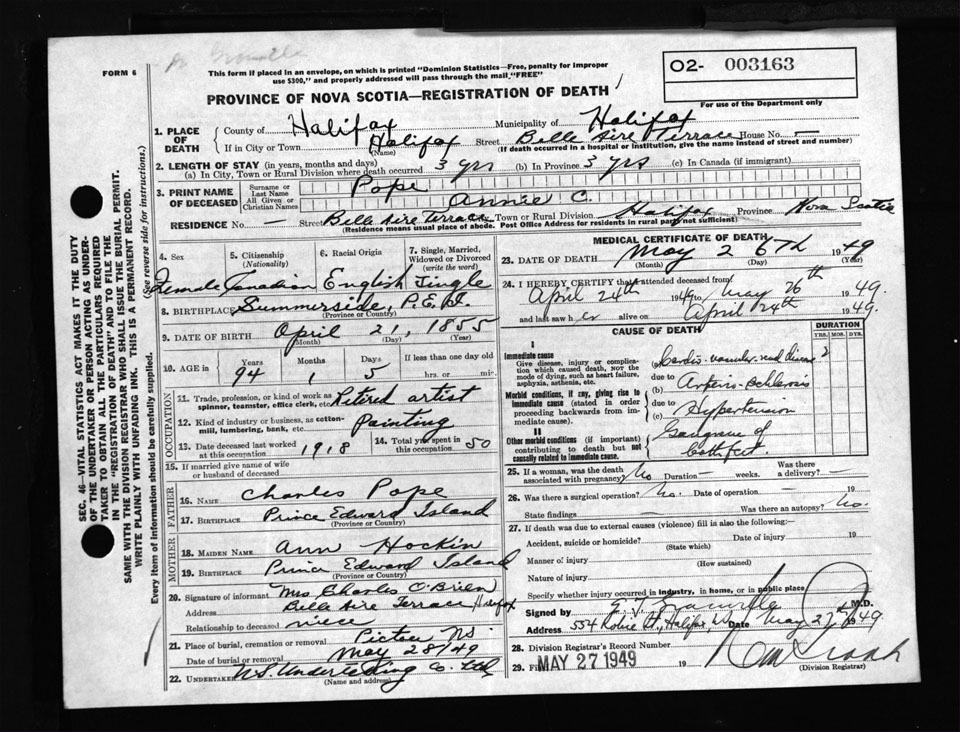 FORM 6
This form if placed in an envelope, on which is printed "Dominion Statistics—Free, penalty for improper
use $300," and properly addressed will pass through the mail "FREE"
PROVINCE OF NOVA SCOTIA—REGISTRATION OF DEATH
O2- 003163
For use of the Department only
1. PLACE OF DEATH
County of Halifax Municipality of Halifax
If in City or Town Halifax Street Belle Aire Terrace House No. —
(Name) (If death occurred in a hospital or institution, give the name instead of street and number)
2. LENGTH OF STAY (in years, months and days)
(a) In City, Town or Rural Division where death occurred 3 yrs (b) In Province 3 yrs (c) In Canada (if immigrant)
3. PRINT NAME OF DECEASED
Surname or Last Name Pope
All Given or Christian Names Annie C.
RESIDENCE No. Street Belle Aire Terrace Town or Rural Division Halifax Province Nova Scotia
(Residence means usual place of abode. Post Office Address for residents in rural parts not sufficient)
4. Sex Female
5. Citizenship (Nationality) Canadian
6. Racial Origin English
7. Single, Married, Widowed or Divorced (write the word) Single
8. BIRTHPLACE Summerside, P.E.I.
(Province or Country)
9. DATE OF BIRTH April 21, 1855
(Month) (Day) (Year)
10. AGE in Years 94 Months 1 Days 5 If less than one day old hrs. or min.
OCCUPATION
11. Trade, profession, or kind of work as spinner, teamster, office clerk, etc. Retired artist
12. Kind of industry or business, as cotton-mill, lumbering, bank, etc. Painting
13. Date deceased last worked at this occupation 1918
14. Total yrs. spent in this occupation 50
15. If married give name of wife or husband of deceased
FATHER
16. NAME Charles Pope
17. BIRTHPLACE Prince Edward Island
(Province or Country)
MOTHER
18. MAIDEN NAME Ann Hockin
19. BIRTHPLACE Prince Edward Island
(Province or Country)
20. Signature of informant Mrs Charles O'Brien
Address Belle Aire Terrace, Halifax
Relationship to deceased niece
21. Place of burial, cremation or removal Pictou NS.
Date of burial or removal May 28/49
22. UNDERTAKER N.S. Undertaking Co. Ltd
(Name and address)
MEDICAL CERTIFICATE OF DEATH
23. DATE OF DEATH May 26th 1949
(Month) (Day) (Year)
24. I HEREBY CERTIFY that I attended deceased from
April 24th 1949 to May 26th 1949.
and last saw her alive on April 24th 1949.
CAUSE OF DEATH
DURATION
YRS. MOS. DYS.
I
Immediate cause
Give disease, injury or complication which caused death, NOT the mode of dying, such as heart failure, asphyxia, asthenia, etc.
(a) Cardio-vascular-renal disease 2
due to
Morbid conditions, if any, giving rise to immediate cause (stated in order proceeding backwards from immediate cause).
(b) Arterio-Schlerosis
due to
(c) Hypertension
II
Other morbid conditions (if important) contributing to death but not causally related to immediate cause.
Gangrene of
both feet.
25. If a woman, was the death associated with pregnancy? No Duration weeks. Was there a delivery? —
26. Was there a surgical operation? No. Date of operation — 19
State findings — Was there an autopsy? No.
27. If death was due to external causes (violence) fill in also the following:—
Accident, suicide or homicide? Date of injury 19
(State which)
Manner of injury
(How sustained)
Nature of injury
Specify whether injury occurred in industry, in home, or in public place
Signed by M.D.
Address 554 Robie St., Halifax, NS Date May 27 1949
28. Division Registrar's Record Number
29. Filed MAY 27 1949 19
(Division Registrar)
SEC. 46—VITAL STATISTICS ACT MAKES IT THE DUTY
OF THE UNDERTAKER OR PERSON ACTING AS UNDER-
TAKER TO OBTAIN ALL THE PARTICULARS REQUIRED
IN THE "REGISTRATION OF DEATH" AND TO FILE THE
SAME WITH THE DIVISION REGISTRAR WHO SHALL ISSUE THE BURIAL PERMIT.
WRITE PLAINLY WITH UNFADING INK. THIS IS A PERMANENT RECORD.
Every item of information should be carefully supplied. (See reverse side for instructions.)